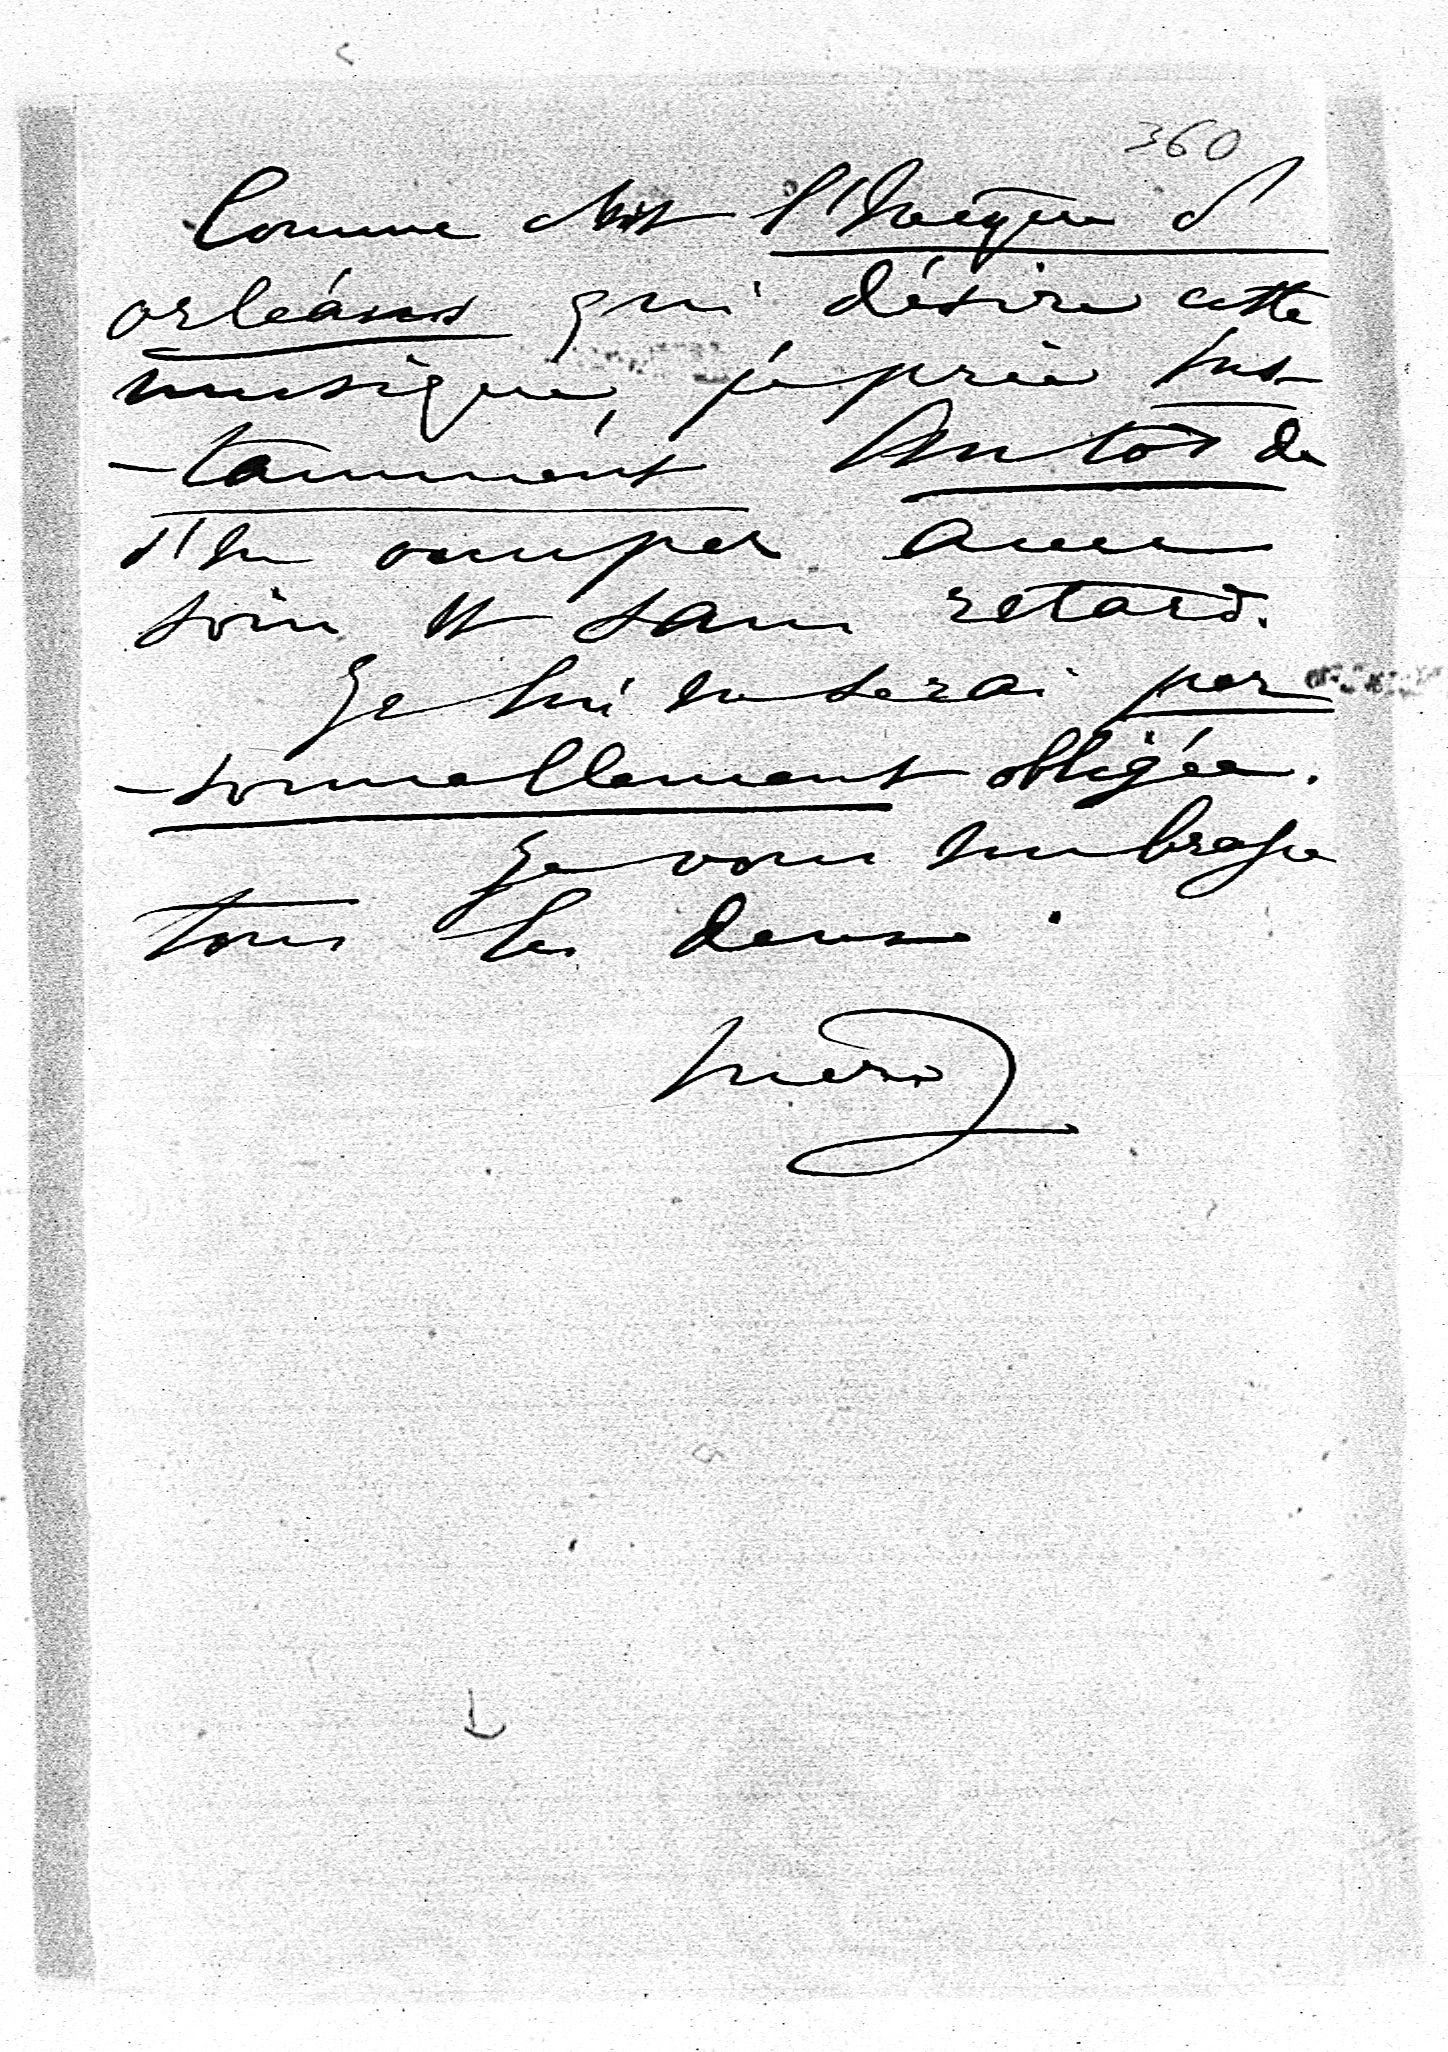 360
Comme c'est l'Evêque d'
orléans qui désire cette
musique, je prie ins-
-tamment Antot de
s'en occuper avec
soin et sans retard.
Je lui en serai per
-sonnellement obligée.
Je vous embrasse
tous les deux.